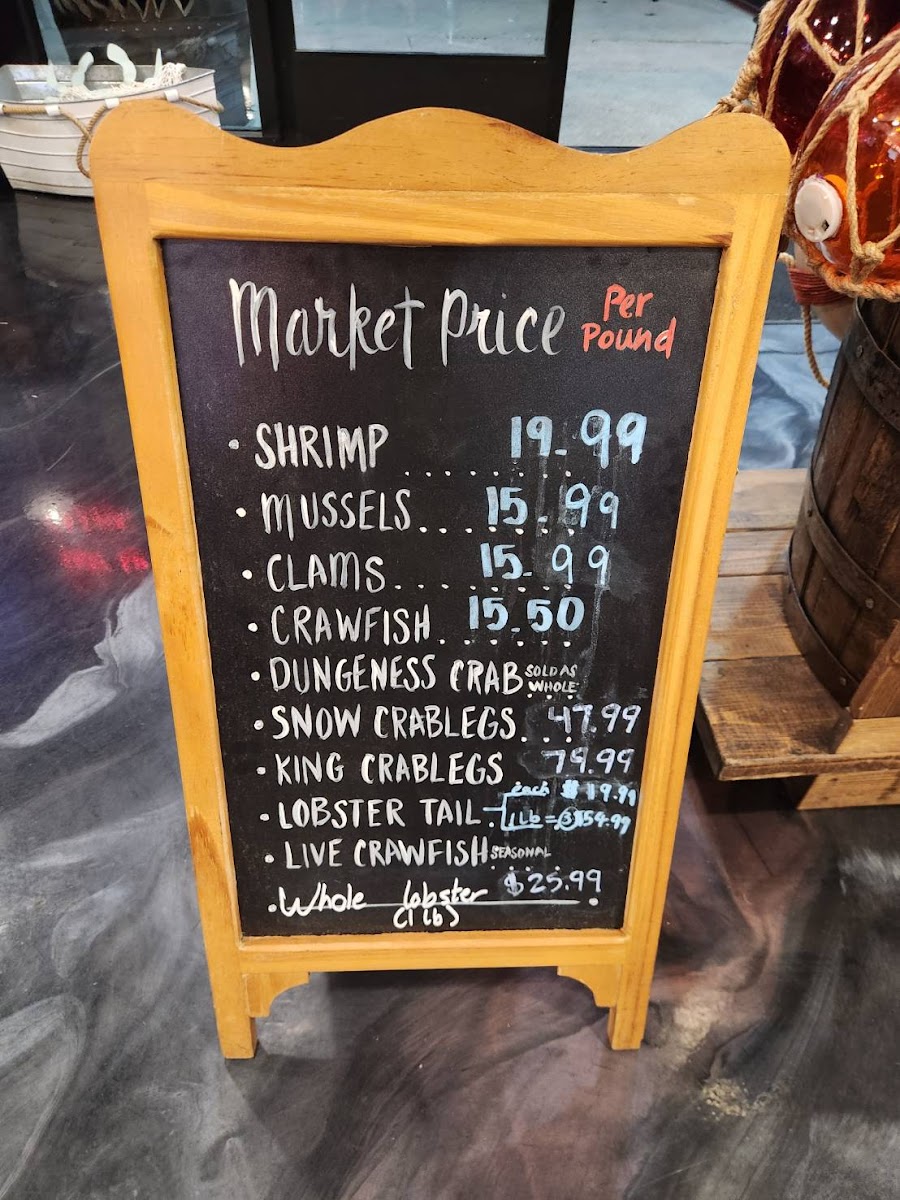 Market Price Per Pound
• SHRIMP ........ 19.99
• MUSSELS........ 15.99
• CLAMS........ 15.99
• CRAWFISH..... 15.50
• DUNGENESS CRAB SOLD AS WHOLE
• SNOW CRABLEGS... 47.99
• KING CRABLEGS 79.99
• LOBSTER TAIL each $19.99
1 Lb = 3 $54.99
• LIVE CRAWFISH SEASONAL
• Whole lobster $25.99
(1 lb)